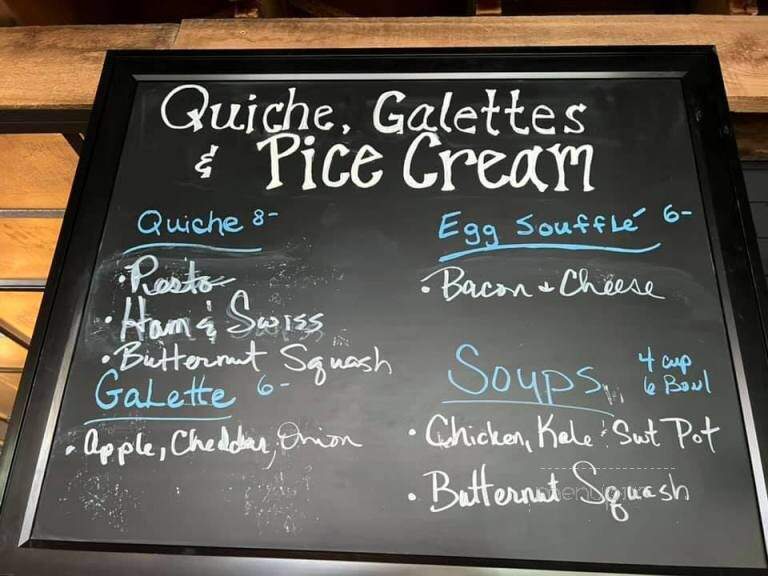 Quiche, Galettes
& Pice Cream
Quiche 8-
• Pesto
• Ham & Swiss
• Butternut Squash
Galette 6-
• Apple, Cheddar, Onion
Egg Soufflé 6-
• Bacon & Cheese
Soups
4 cup
6 Bowl
• Chicken, Kale Swt Pot
• Butternut Squash